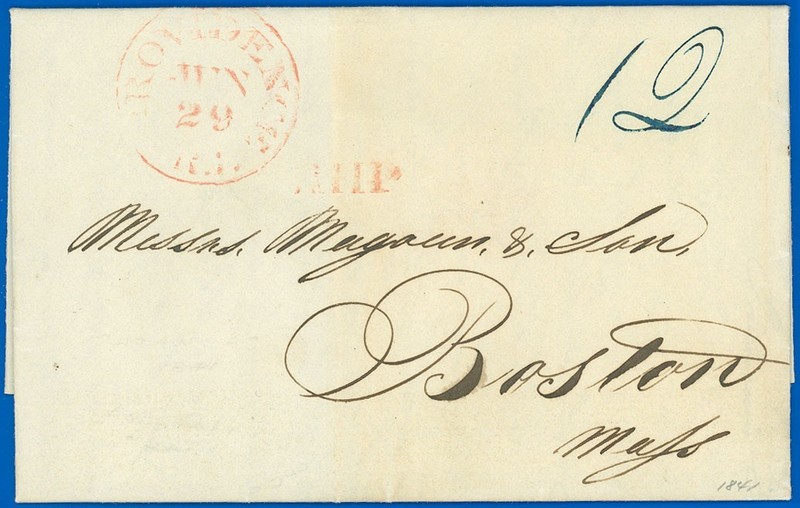 PROVIDENCE
JUN
29
R.I.
12
SHIP
Messrs. Magoun. & Son.
Boston
Mass
1841